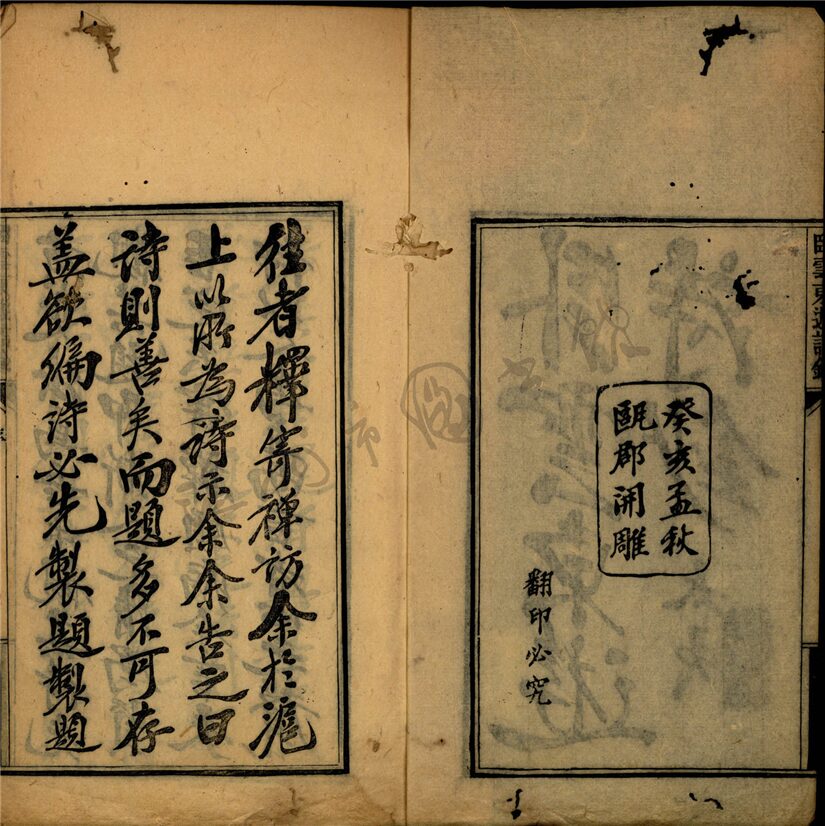 癸亥孟秋
甌郡開雕
翻印必究
往者釋寄禪訪余於滬
上以所為詩示余余告之曰
詩則善矣而題多不可存
蓋欲編詩必先製題製題